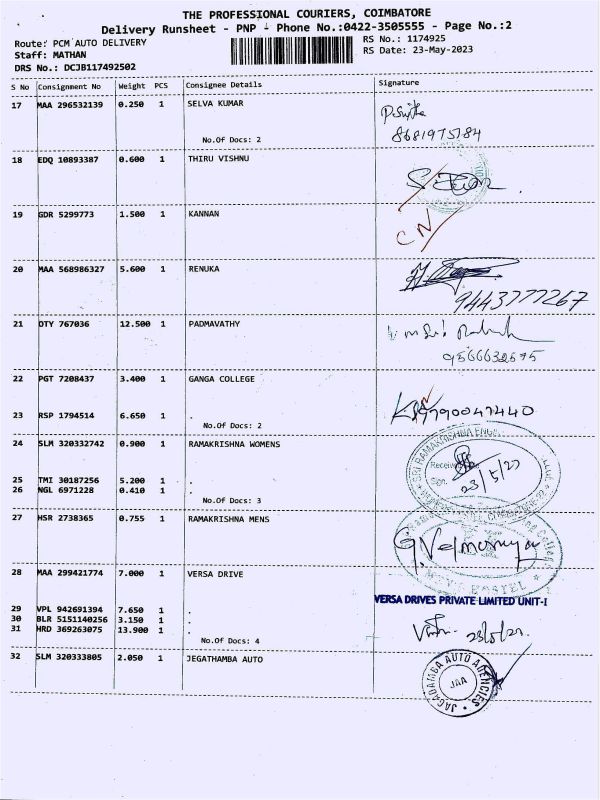 THE PROFESSIONAL COURIERS, COIMBATORE
Delivery Runsheet - PNP - Phone No.:0422-3505555 - Page No.:2
Route: PCM AUTO DELIVERY RS No.: 1174925
Staff: MATHAN RS Date: 23-May-2023
DRS No.: DCJB117492502
S No Consignment No Weight PCS Consignee Details Signature
17 MAA 296532139 0.250 1 SELVA KUMAR
8681975184
No.Of Docs: 2
18 EDQ 10893387 0.600 1 THIRU VISHNU
19 GDR 5299773 1.500 1 KANNAN
CN
20 MAA 568986327 5.600 1 RENUKA
9443777267
21 DTY 767036 12.500 1 PADMAVATHY
9566632595
22 PGT 7208437 3.400 1 GANGA COLLEGE
9790047440
23 RSP 1794514 6.650 1 .
No.Of Docs: 2
24 SLM 320332742 0.900 1 RAMAKRISHNA WOMENS
SRI RAMAKRISHNA ENGG.
23/5/23
25 TMI 30187256 5.200 1 .
26 NGL 6971228 0.410 1 .
No.Of Docs: 3
27 HSR 2738365 0.755 1 RAMAKRISHNA MENS
HOSTEL
28 MAA 299421774 7.000 1 VERSA DRIVE
VERSA DRIVES PRIVATE LIMITED UNIT-I
29 VPL 942691394 7.650 1 .
30 BLR 5151140256 3.150 1 .
31 HRD 369263075 13.900 1 .
No.Of Docs: 4
32 SLM 320333805 2.050 1 JEGATHAMBA AUTO
JAGADAMBA AUTO AGENCIES
JAA